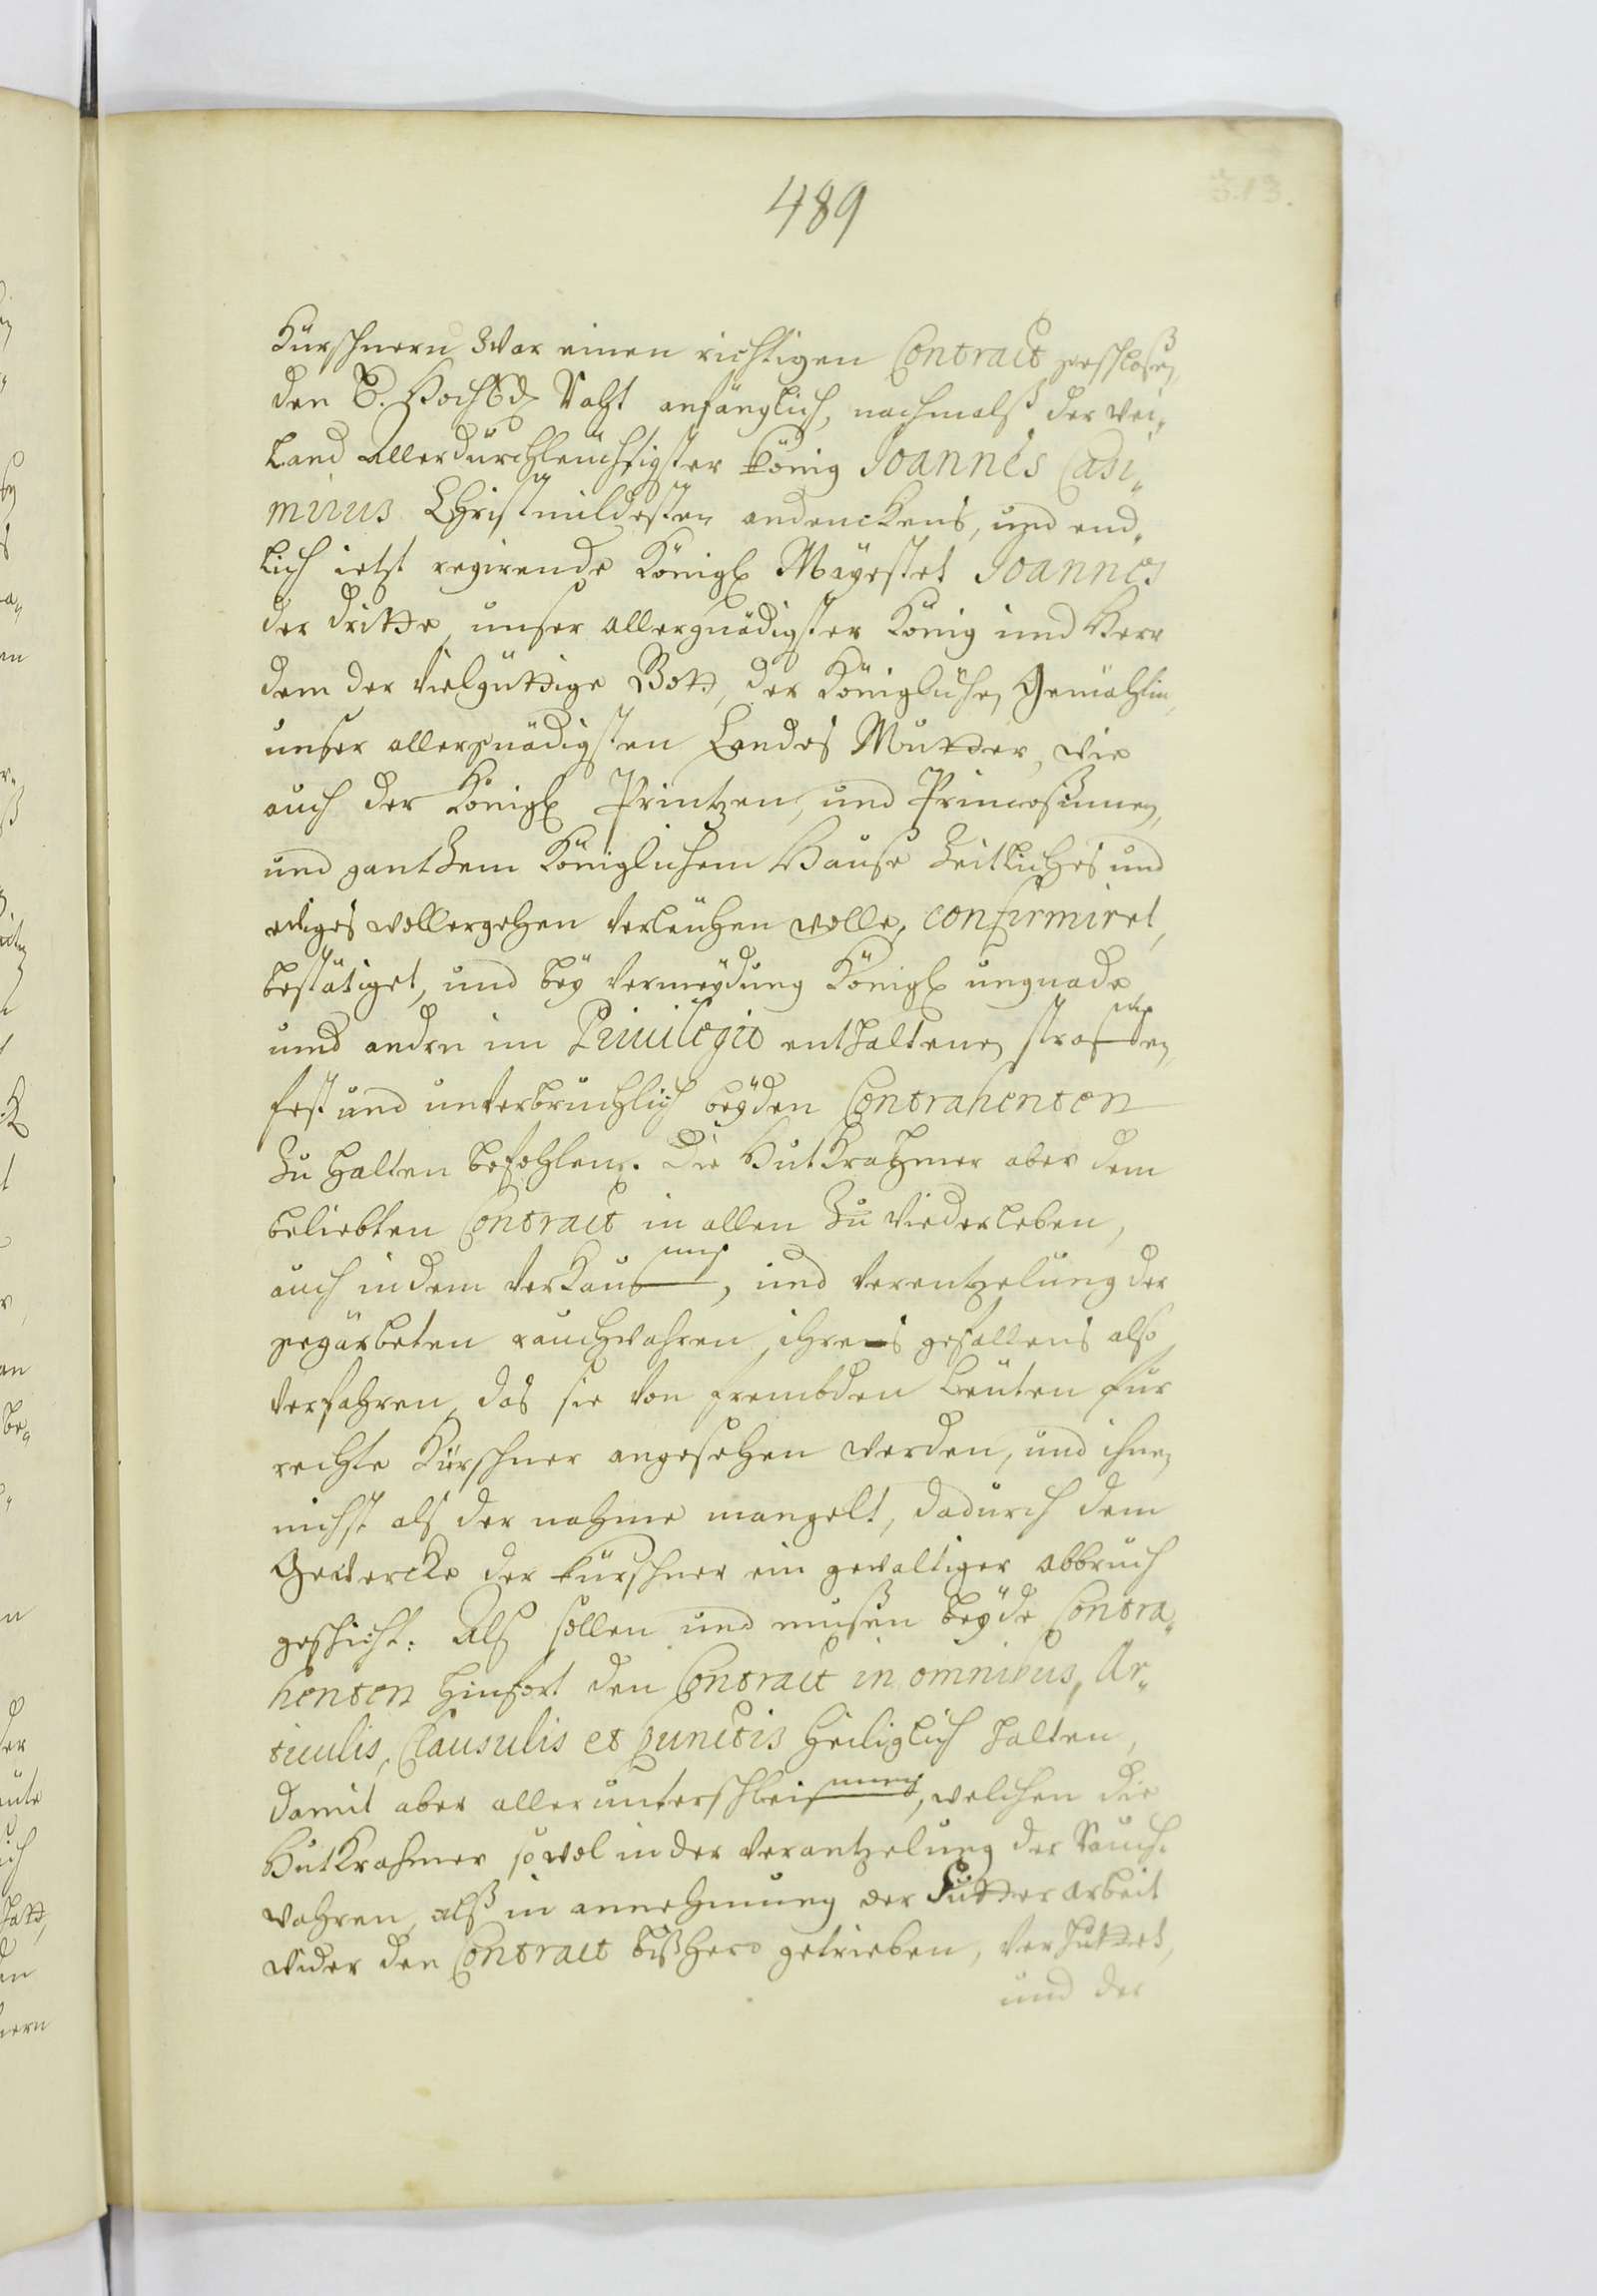 489
513.
Kürschnern zwar einen richtigen Contract geschloßen,
den E. HochEd Raht anfänglich, nachmalß der wei„
land Allerdurchleüchtigster König Joannes Casi„
mirus Christmildesten andenckens, und end„
lich ietzt regirende Königl Mayestet Joannes
der dritte, unser allergnädigster König und Herr
dem der Vielgüttige Gott, der Königlichen Gemählin,
unser allergnädigsten Landes Mutter, wie
auch der Königl Printzen, und Princeßinnen,
und gantzem Königlichem Hause Zeitliches und
ewiges wollergehen verleuhen wolle, confirmiret,
bestätiget, und bey vermeydung Königl ungnade
und andren im Privilegio enthaltenen straffen,
fest und unverbruchlich beyden Contrahenten
Zu halten befohlen. Die Hutkrahmer aber dem
beliebten Contract in allen Zu wiederleben,
auch in dem verkauf, und vereintzelung der
gegärbeten rauchwahren, ihres gefallens also
verfahren, das sie von frembden Leuten für
rechte Kürschner angesehen werden, und ihnen
nichst als der nahme mangelt, dadurch dem
Gewercke der kürschner ein gewaltiger abbruch
geschicht: Alß sollen und mußen beyde Contra„
henten hinfort den Contract in omnibus, Ar„
ticulis, Clausulis et Punctis heiliglich halten,
damit aber aller unterschleif, welchen die
Hutkrahmer sowol in der vereintzelung der Rauch„
wahren, alß in annehmung der Futter arbeit
wider den Contract bißhero getrieben, verhüttet,
und der